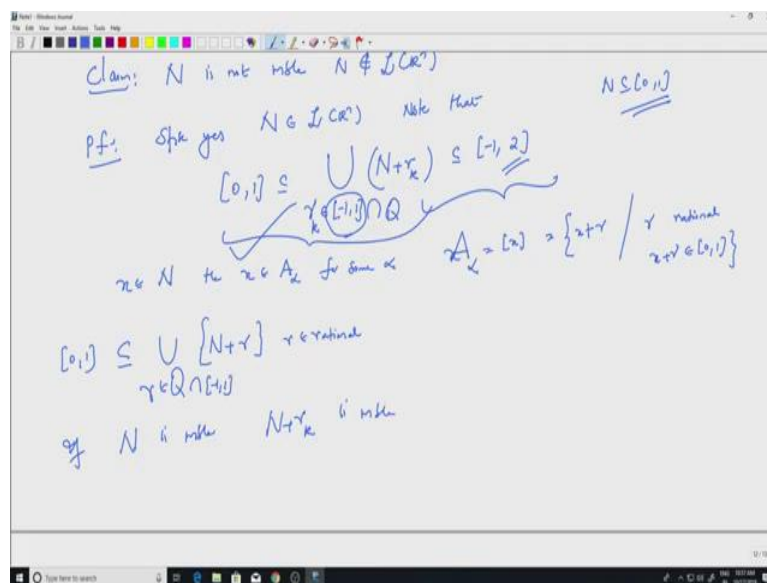 Note1 - Windows Journal
File Edit View Insert Actions Tools Help
Claim: N is not mble N ∉ L(ℝⁿ)
N ⊆ [0,1]
Pf: Spse yes N ∈ L(ℝⁿ) Note that
[0,1] ⊆ ⋃ (N+r_k) ⊆ [-1, 2]
r_k ∈ [-1,1] ∩ Q
x ∈ N the x ∈ A_α for some α A_α = [x] = {x+r / r rational
x+r ∈ [0,1]}
[0,1] ⊆ ⋃ {N+r} r ∈ rational
r ∈ Q ∩ [-1,1]
If N is mble N+r_k is mble
Type here to search